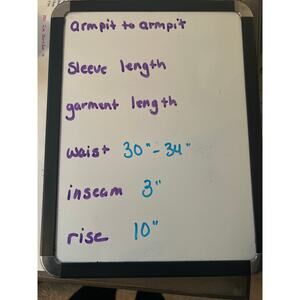 armpit to armpit
sleeve length
garment length
waist 30"-34"
inseam 3"
rise 10"